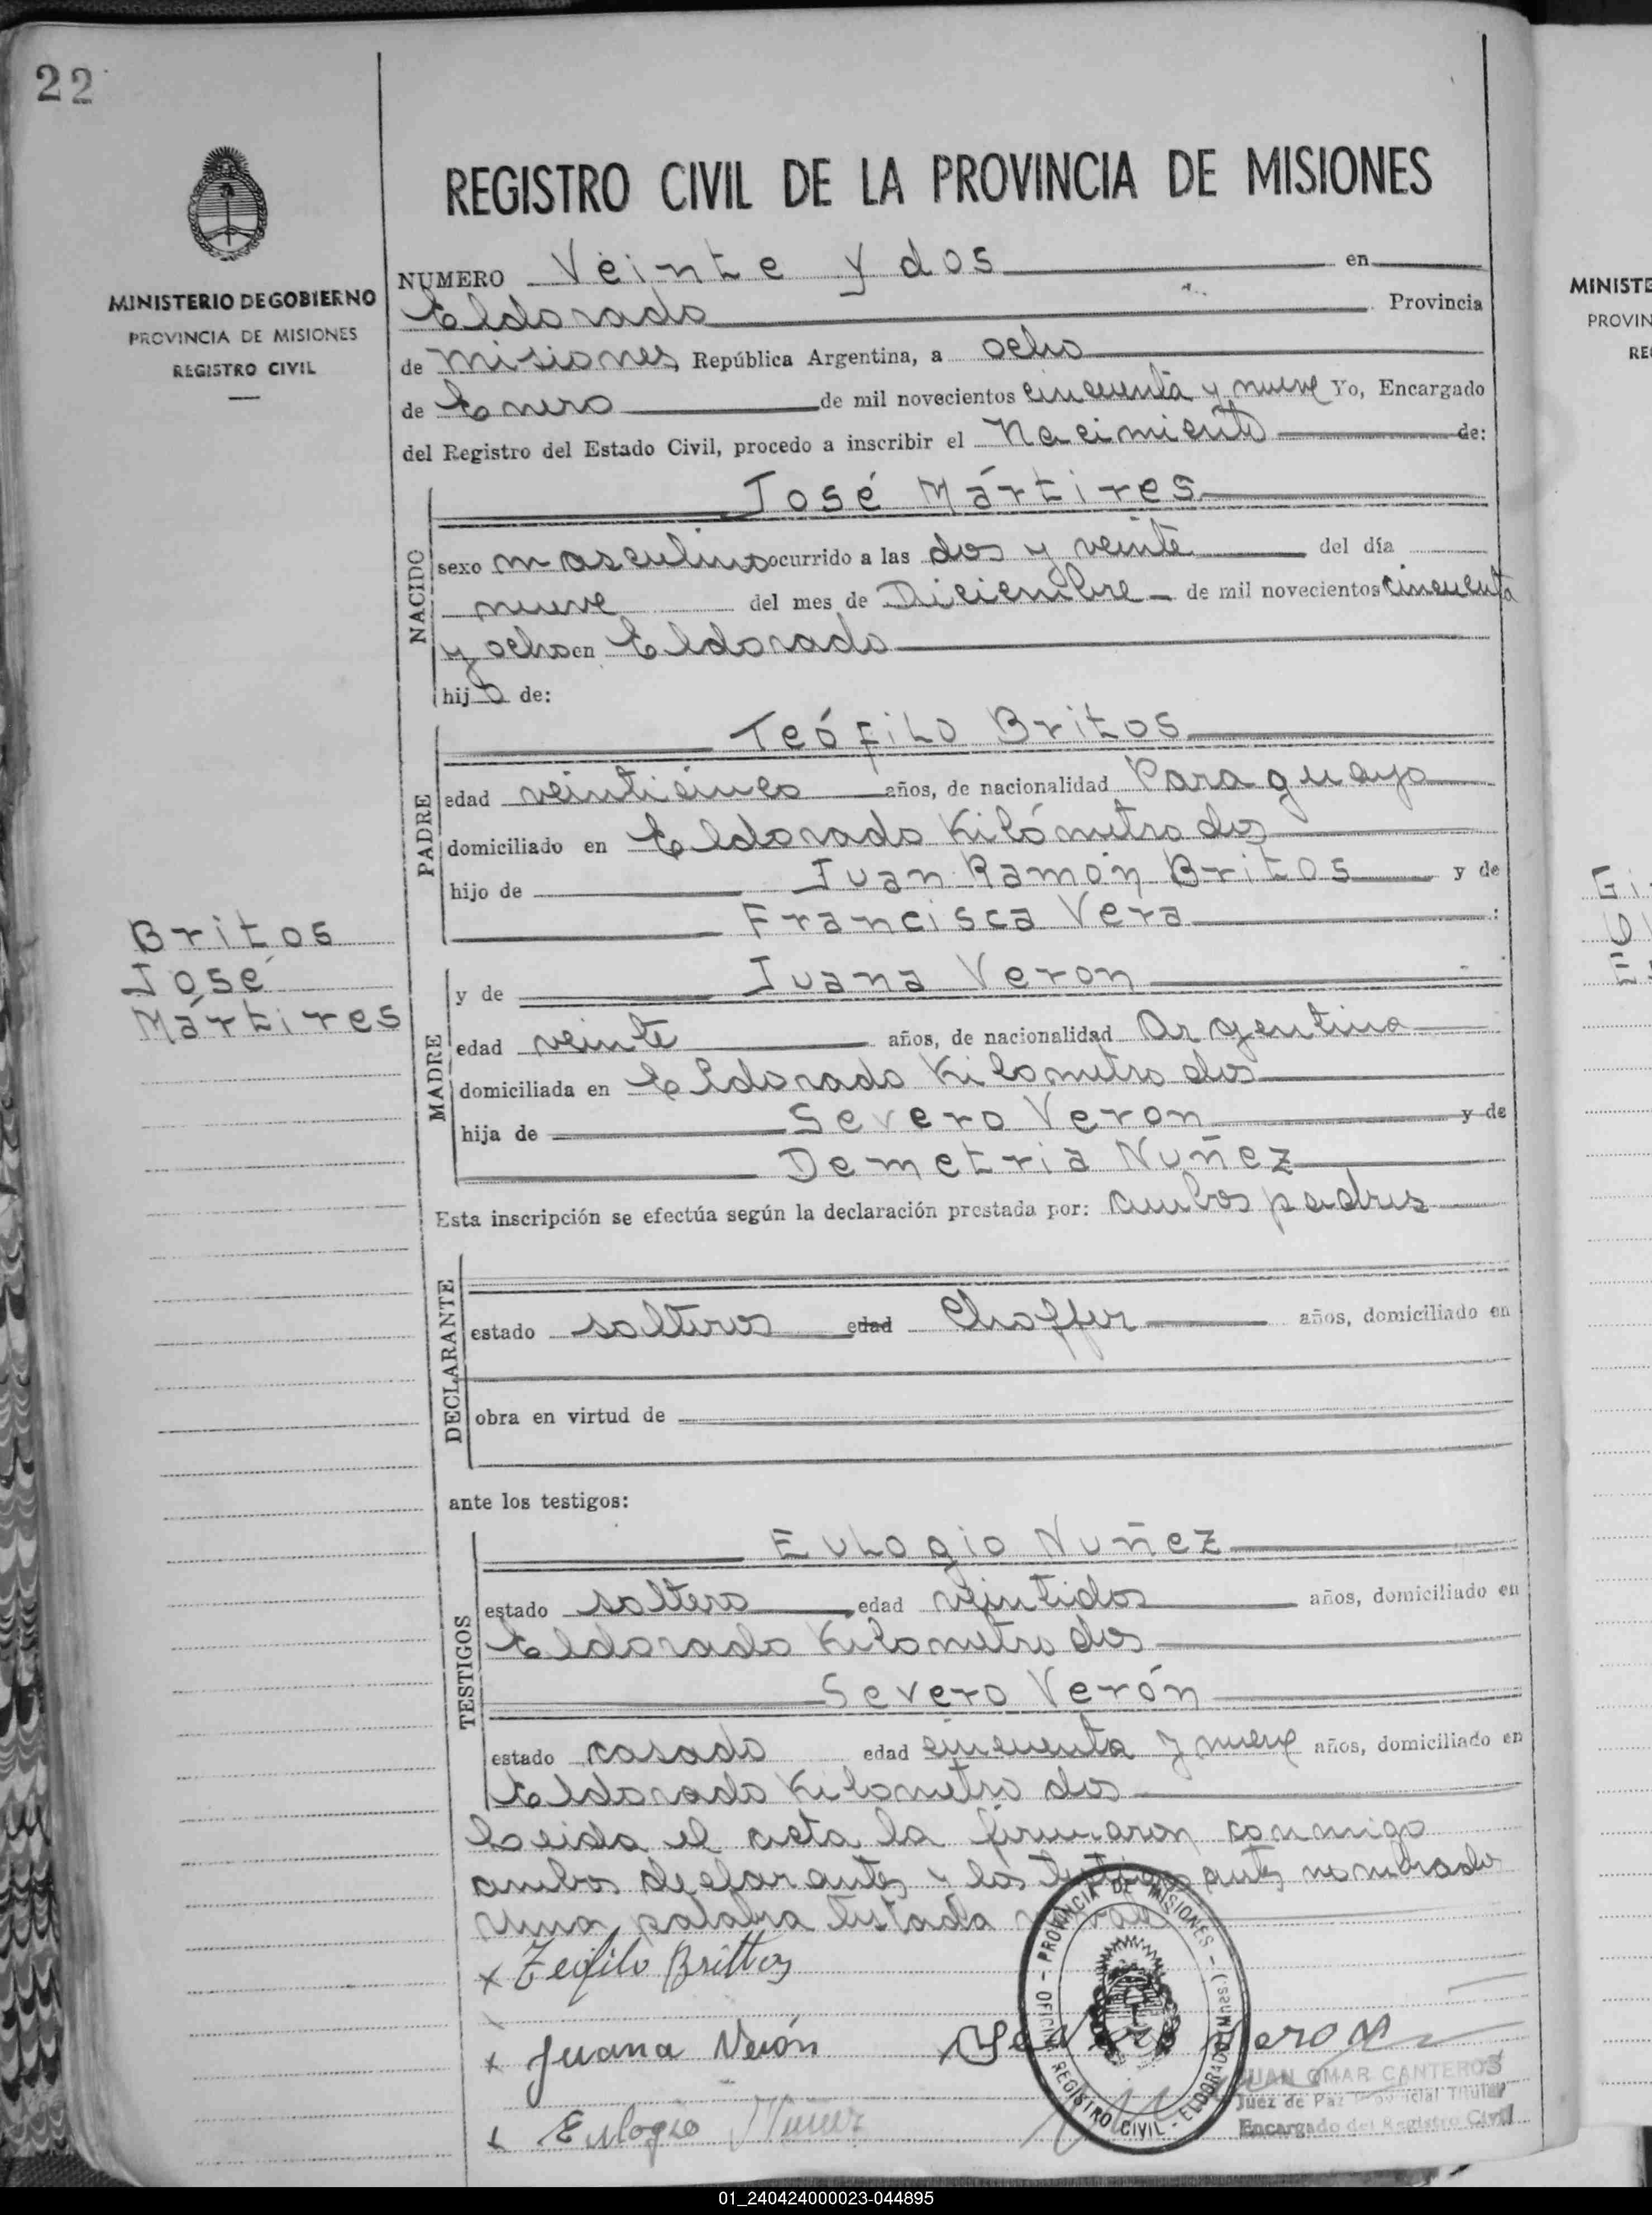 22
REGISTRO CIVIL DE LA PROVINCIA DE MISIONES
MINISTERIO DE GOBIERNO
PROVINCIA DE MISIONES
REGISTRO CIVIL
NUMERO Veinte y dos en
Eldorado Provincia
de Misiones República Argentina, a ocho
de Enero de mil novecientos cincuenta y nueve Yo, Encargado
del Registro del Estado Civil, procedo a inscribir el Nacimiento de:
NACIDO
José Mártires
sexo masculino ocurrido a las dos y veinte del día
nueve del mes de Diciembre de mil novecientos cincuenta
y ocho en Eldorado
hijo de:
PADRE
Teófilo Britos
edad veinticinco años, de nacionalidad Paraguaya
domiciliado en Eldorado Kilómetro dos
hijo de Juan Ramón Britos y de
Francisca Vera :
Britos
José
Mártires
MADRE
y de Juana Veron
edad veinte años, de nacionalidad Argentina
domiciliada en Eldorado Kilometro dos
hija de Severo Veron y de
Demetria Nuñez
Esta inscripción se efectúa según la declaración prestada por: ambos padres
DECLARANTE
estado solteros edad Chaffer años, domiciliado en
obra en virtud de
ante los testigos:
TESTIGOS
Eulogio Nuñez
estado soltero edad veintidos años, domiciliado en
Eldorado Kilometro dos
Severo Verón
estado casado edad cincuenta y nueve años, domiciliado en
Eldorado Kilometro dos
Leida el acta la firmaron conmigo
ambos declarantes y los testigos antes nombrados
una palabra testada no vale
x Teofilo Brittos
x Juana Verón
x Severo Veron
x Eulogio Nuñez
OFICINA REGISTRO CIVIL - ELDORADO (MNES.) - PROVINCIA DE MISIONES -
JUAN OMAR CANTEROS
Juez de Paz Provincial Titular
Encargado del Registro Civil
MINISTE
PROVIN
RE
Gi
E
01_240424000023-044895